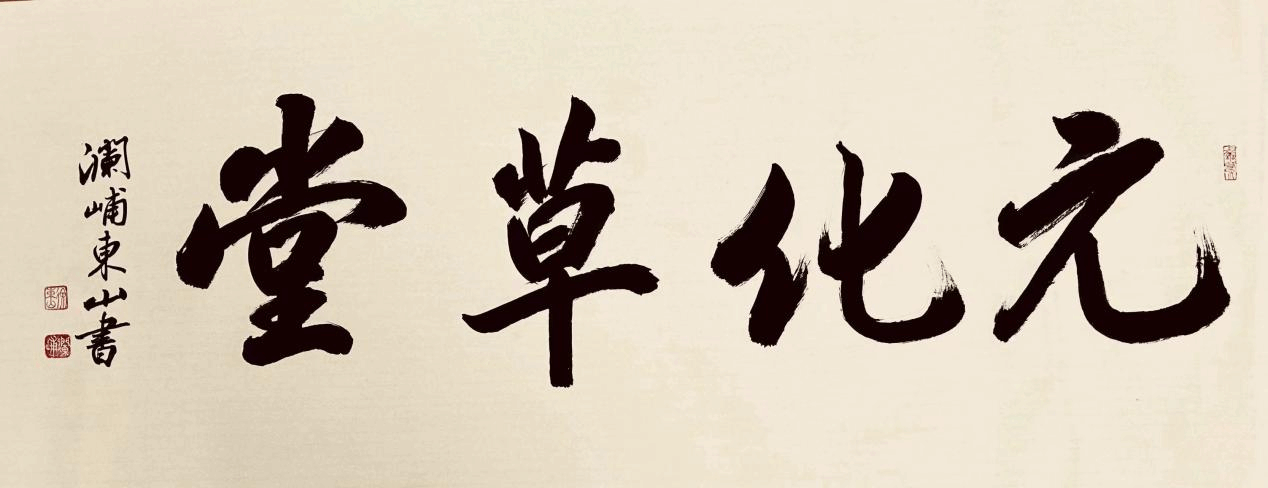 元化草堂
瀾峬東山書